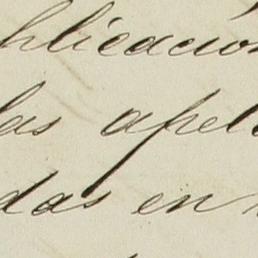 blicacion
las apel
das en